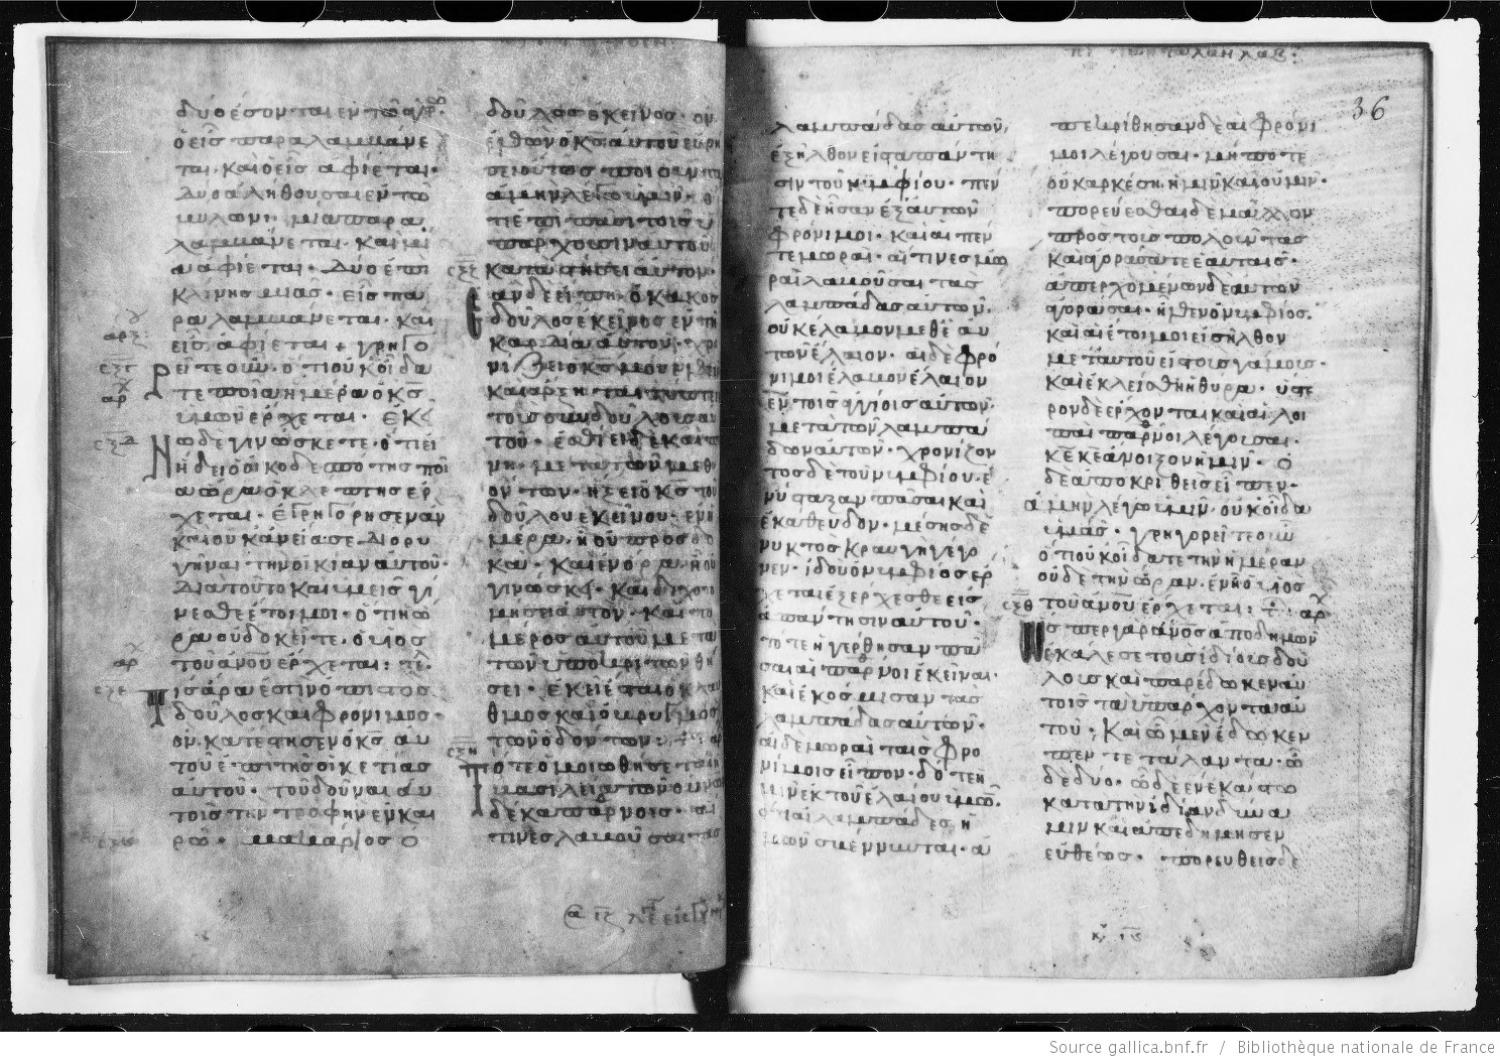 δύο ἔσονται ἐν τῶ ἀγρῶ·
ὁ εἷς παραλαμβάνε
ται· καὶ ὁ εἷς ἀφίεται·
Δύο ἀλήθουσαι ἐν τῶ
μυλῶνι· μία παρα
λαμβάνεται· καὶ μί
α ἀφίεται· Δύο ἐπὶ
κλίνης μιᾶς· εἷς πα
ραλαμβάνεται· καὶ
εἷς ἀφίεται + γρηγο
ρεῖτε οὖν· ὅτι οὐκ οἴδα
τε ποία ἡμέρα ὁ κς
ὑμῶν ἔρχεται· ἐκ
νωδε γινώσκετε· ὅτι εἰ
ἤδει ὁ οἰκοδεσπότης ποί
α ὥρα ὁ κλέπτης ἔρ
χεται· ἐγρηγόρησεν ἂν
καὶ οὐκ ἂν εἴασε διορυ
γῆναι τὴν οἰκίαν αὐτοῦ·
Διὰ τοῦτο καὶ ὑμεῖς γί
νεσθε ἕτοιμοι· ὅτι ἧ ὥ
ρα οὐ δοκεῖτε· ὁ υιος
τοῦ ανου ἔρχεται: τε·
τίς ἄρα ἐστὶν ὁ πιστὸς
δοῦλος καὶ φρόνιμος·
ὃν κατέστησεν ὁ κς αυ
τοῦ ἐπὶ τῆς οἰκετίας
αὐτοῦ· τοῦ δοῦναι αὐ
τοῖς τὴν τροφὴν ἐν και
ρῶ· μακάριος ὁ
δοῦλος ἐκεῖνος· ὃν
ἐλθὼν ὁ κς αὐτοῦ εὑρή
σει οὕτως ποιοῦντα
ἀμὴν λέγω ὑμῖν· ὅ
τι ἐπὶ πᾶσι τοῖς ὑ
πάρχουσιν αὐτοῦ
καταστήσει αὐτόν·
ἐὰν δὲ εἴπη ὁ κακὸς
δοῦλος ἐκεῖνος ἐν τῆ
καρδία αὐτοῦ· χρο
νίζει ὁ κς μου ἐλθεῖν
καὶ ἄρξηται τύπτειν
τοὺς συνδούλους αὐ
τοῦ· ἐσθίει δὲ καὶ πί
νη· μετὰ τῶν μεθυ
όντων· ἥξει ὁ κς τοῦ
δούλου ἐκείνου· ἐν ἡ
μέρα ἧ οὐ προσδο
κᾶ· καὶ ἐν ὥρα ἧ οὐ
γινώσκει· καὶ διχοτο
μήσει αὐτὸν· καὶ τὸ
μέρος αὐτοῦ μετὰ
τῶν ὑποκριτῶν θή
σει· ἐκεῖ ἔσται ὁ κλαυ
θμος καὶ ὁ βρυγμὸς
τῶν ὀδόντων:
τότε ὁμοιωθήσεται ἡ
βασιλεία τῶν ουνων
δέκα παρθένοις· αἵ
τινες λαβοῦσαι τὰς
36
λαμπάδας αὐτῶν,
ἐξῆλθον εἰς ἀπάντη
σιν τοῦ νυμφίου· πέν
τε δὲ ἦσαν ἐξ αὐτῶν
φρόνιμοι· καὶ αἱ πέν
τε μωραί· αἵτινες μω
ραὶ λαβοῦσαι τὰς
λαμπάδας αὐτῶν·
οὐκ ἔλαβον μεθ ἑαυ
τῶν ἔλαιον· αἱ δὲ φρό
νιμοι ἔλαβον ἔλαιον
ἐν τοῖς ἀγγίοις αὐτῶν·
μετὰ τῶν λαμπά
δων αὐτῶν· χρονίζον
τος δὲ τοῦ νυμφίου· ἐ
νύσταξαν πᾶσαι καὶ
ἐκάθευδον· μέσης δὲ
νυκτὸς κραυγὴ γέγο
νεν· ἰδοὺ ὁ νυμφίος ἔρ
χεται ἐξέρχεσθε εἰς
ἀπάντησιν αὐτοῦ·
τότε ἠγέρθησαν πᾶ
σαι αἱ παρθένοι ἐκεῖναι·
καὶ ἐκόσμισαν τὰς
λαμπάδας αὐτῶν·
αἱ δὲ μωραὶ ταῖς φρο
νίμοις εἶπον· δότε ἡ
μῖν ἐκ τοῦ ἐλαίου ὑμῶν·
ὅτι αἱ λαμπάδες ἡ
μῶν σβέννυνται· ἀ
πεκρίθησαν δὲ αἱ φρόνι
μοι λέγουσαι· μήποτε
οὐκ ἀρκέση ἡμῖν καὶ ὑμῖν·
πορεύεσθαι δὲ μᾶλλον
πρὸς τοὺς πωλοῦντας
καὶ ἀγοράσατε ἑαυταῖς·
ἀπερχομένων δὲ αὐτῶν
ἀγοράσαι· ἦλθεν ὁ νυμφίος.
καὶ αἱ ἕτοιμοι εἰσῆλθον
μετ αὐτοῦ εἰς τοὺς γάμους·
καὶ ἐκλείσθη ἡ θύρα· ὕστε
ρον δὲ ἔρχονται καὶ αἱ λοι
παὶ παρθένοι λέγουσαι·
κε κε ἄνοιξον ἡμῖν· ὁ
δὲ ἀποκριθεὶς εἶπεν·
ἀμὴν λέγω ὑμῖν· οὐκ οἶδα
ὑμᾶς· γρηγορεῖτε οῦν
ὅτι οὐκ οἴδατε τὴν ἡμέραν
οὐδὲ τὴν ὥραν· ἐν ἧ ὁ υἱος
τοῦ ανου ἔρχεται:
ὥσπερ γὰρ ανος ἀποδημῶν
ἐκάλεσε τοὺς ἰδίους δού
λους καὶ παρέδωκεν αὐ
τοῖς τὰ ὑπάρχοντα αὐ
τοῦ· Καὶ ὧ μὲν ἔδωκεν
πέντε τάλαντα· ὧ
δὲ δύο· ὧ δὲ ἕν ἑκάστω
κατὰ τὴν ἰδίαν δύνα
μιν καὶ ἀπεδήμησεν
εὐθέως· πορευθεὶς δὲ
Source gallica.bnf.fr / Bibliothèque nationale de France